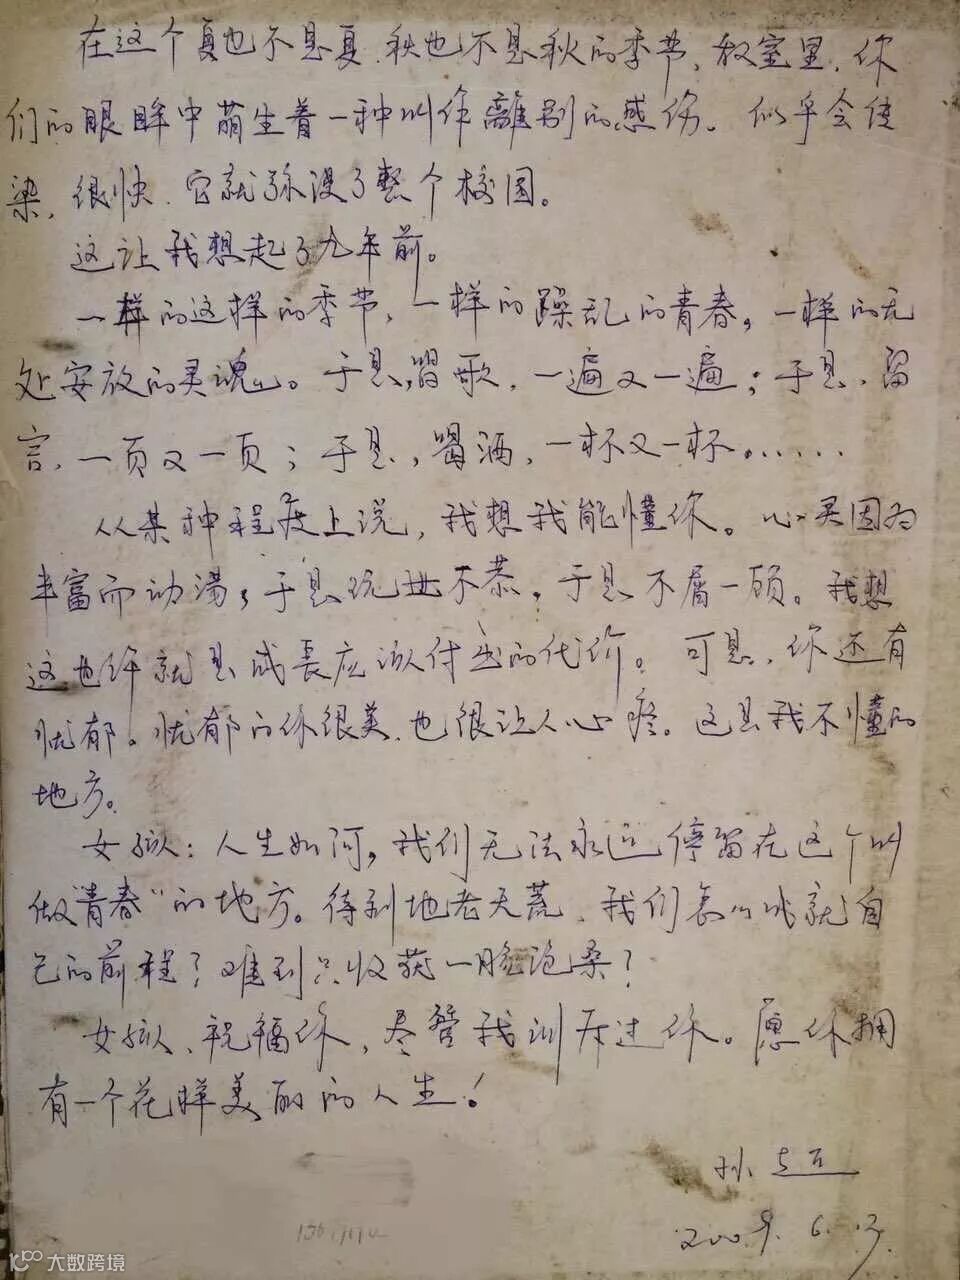 在这个夏也不是夏、秋也不是秋的季节，教室里，你
们的眼眸中萌生着一种叫作離别的感伤。似乎会传
染，很快，它就弥漫了整个校园。
这让我想起了九年前。
一样的这样的季节，一样的躁乱的青春，一样的无
处安放的灵魂。于是，唱歌，一遍又一遍；于是，留
言，一页又一页；于是，喝酒，一杯又一杯……
从某种程度上说，我想我能懂你。心灵因为
丰富而动荡，于是玩世不恭，于是不屑一顾。我想
这也许就是成長应该付出的代价。可是，你还有
忧郁。忧郁的你很美，也很让人心疼。这是我不懂的
地方。
女孩：人生如河，我们无法永远停留在这个叫
做"青春"的地方。待到地老天荒，我们怎么成就自
己的前程？难到只收获一脸沧桑？
女孩、祝福你，尽管我训斥过你。愿你拥
有一个花样美丽的人生！
2009.6.
大数跨境